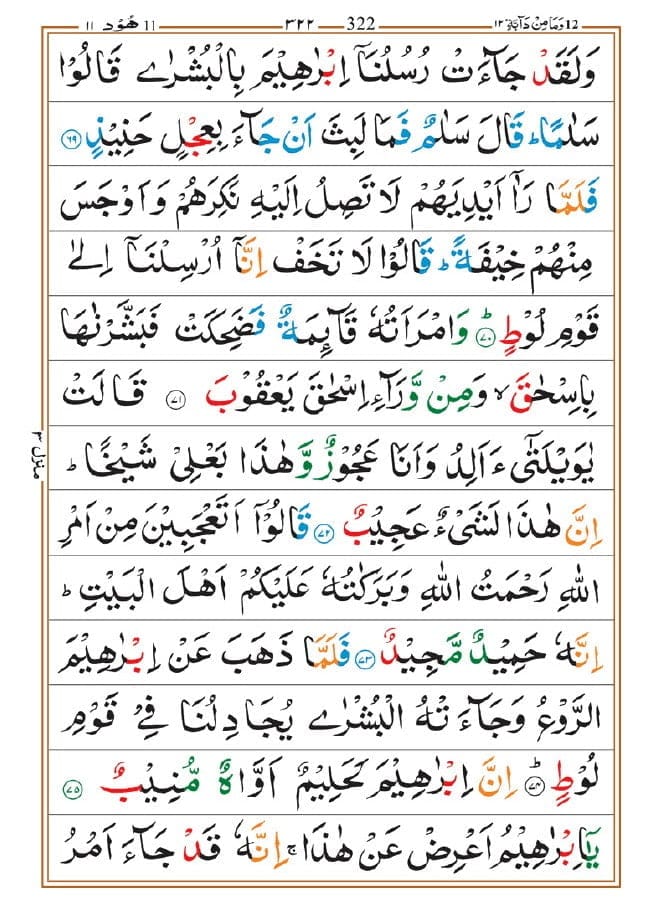 12 وَمَا مِنْ دَآبَّةٍ ١٢ 322 ٣٢٢ 11 هُوْد ١١
وَلَقَدْ جَآءَتْ رُسُلُنَاۤ اِبْرٰهِيْمَ بِالْبُشْرٰى قَالُوْا
سَلٰمًا ؕ قَالَ سَلٰمٌ فَمَا لَبِثَ اَنْ جَآءَ بِعِجْلٍ حَنِيْذٍ ﴿۶۹﴾
فَلَمَّا رَاٰۤ اَيْدِيَهُمْ لَا تَصِلُ اِلَيْهِ نَكِرَهُمْ وَاَوْجَسَ
مِنْهُمْ خِيْفَةً ؕ قَالُوْا لَا تَخَفْ اِنَّاۤ اُرْسِلْنَاۤ اِلٰى
قَوْمِ لُوْطٍ ﴿ؕ۷۰﴾ وَامْرَاَتُهٗ قَآئِمَةٌ فَضَحِكَتْ فَبَشَّرْنٰهَا
بِاِسْحٰقَ ۙ وَمِنْ وَّرَآءِ اِسْحٰقَ يَعْقُوْبَ ﴿۷۱﴾ قَالَتْ
يٰوَيْلَتٰٓى ءَاَلِدُ وَاَنَا عَجُوْزٌ وَّهٰذَا بَعْلِىْ شَيْخًا ؕ
اِنَّ هٰذَا لَشَىْءٌ عَجِيْبٌ ﴿۷۲﴾ قَالُوْۤا اَتَعْجَبِيْنَ مِنْ اَمْرِ
اللّٰهِ رَحْمَتُ اللّٰهِ وَبَرَكٰتُهٗ عَلَيْكُمْ اَهْلَ الْبَيْتِ ؕ
اِنَّهٗ حَمِيْدٌ مَّجِيْدٌ ﴿۷۳﴾ فَلَمَّا ذَهَبَ عَنْ اِبْرٰهِيْمَ
الرَّوْعُ وَجَآءَتْهُ الْبُشْرٰى يُجَادِلُنَا فِىْ قَوْمِ
لُوْطٍ ﴿ؕ۷۴﴾ اِنَّ اِبْرٰهِيْمَ لَحَلِيْمٌ اَوَّاهٌ مُّنِيْبٌ ﴿۷۵﴾
يٰۤاِبْرٰهِيْمُ اَعْرِضْ عَنْ هٰذَا ۚ اِنَّهٗ قَدْ جَآءَ اَمْرُ
منزل ٣